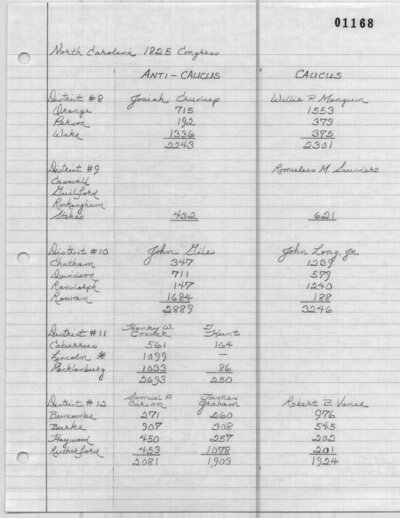 01168
North Carolina 1825 Congress
ANTI-CAUCUS CAUCUS
District #8 Josiah Crudup Willie P. Mangum
Orange 715 1553
Person 192 373
Wake 1336 375
2243 2301
District #9 Romulus M. Saunders
Caswell
Guilford
Rockingham
Stokes 432 621
District #10 John Giles John Long, Jr.
Chatham 347 1239
Davidson 711 579
Randolph 147 1240
Rowan 1684 188
2889 3246
District #11 Henry W. Hunt
Conner
Cabarrus 561 164
Lincoln * 1099 —
Mecklenburg 1033 86
2693 250
District #12 Samuel P. James Robert B. Vance
Carson Graham
Buncombe 271 260 976
Burke 907 308 545
Haywood 450 257 202
Rutherford 453 1078 201
2081 1903 1924